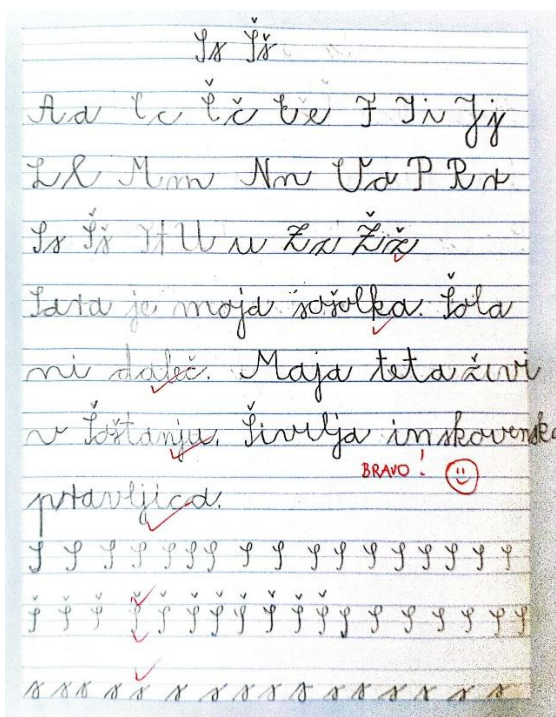 Ss Šš
Aa Cc Čč Ee F Ii Jj
Ll Mm Nn Oo P Rr
Ss Šš Tt Uu Zz Žž
Sara je moja sošolka. Šola
ni daleč. Maja teta živi
v Šoštanju. Šivilja in
BRAVO!
pravljica.
S S S S S S S S S S S S S S S S S
Š Š Š Š Š Š Š Š Š Š Š S S S S S S
s s s s s s s s s s s s s s s s s